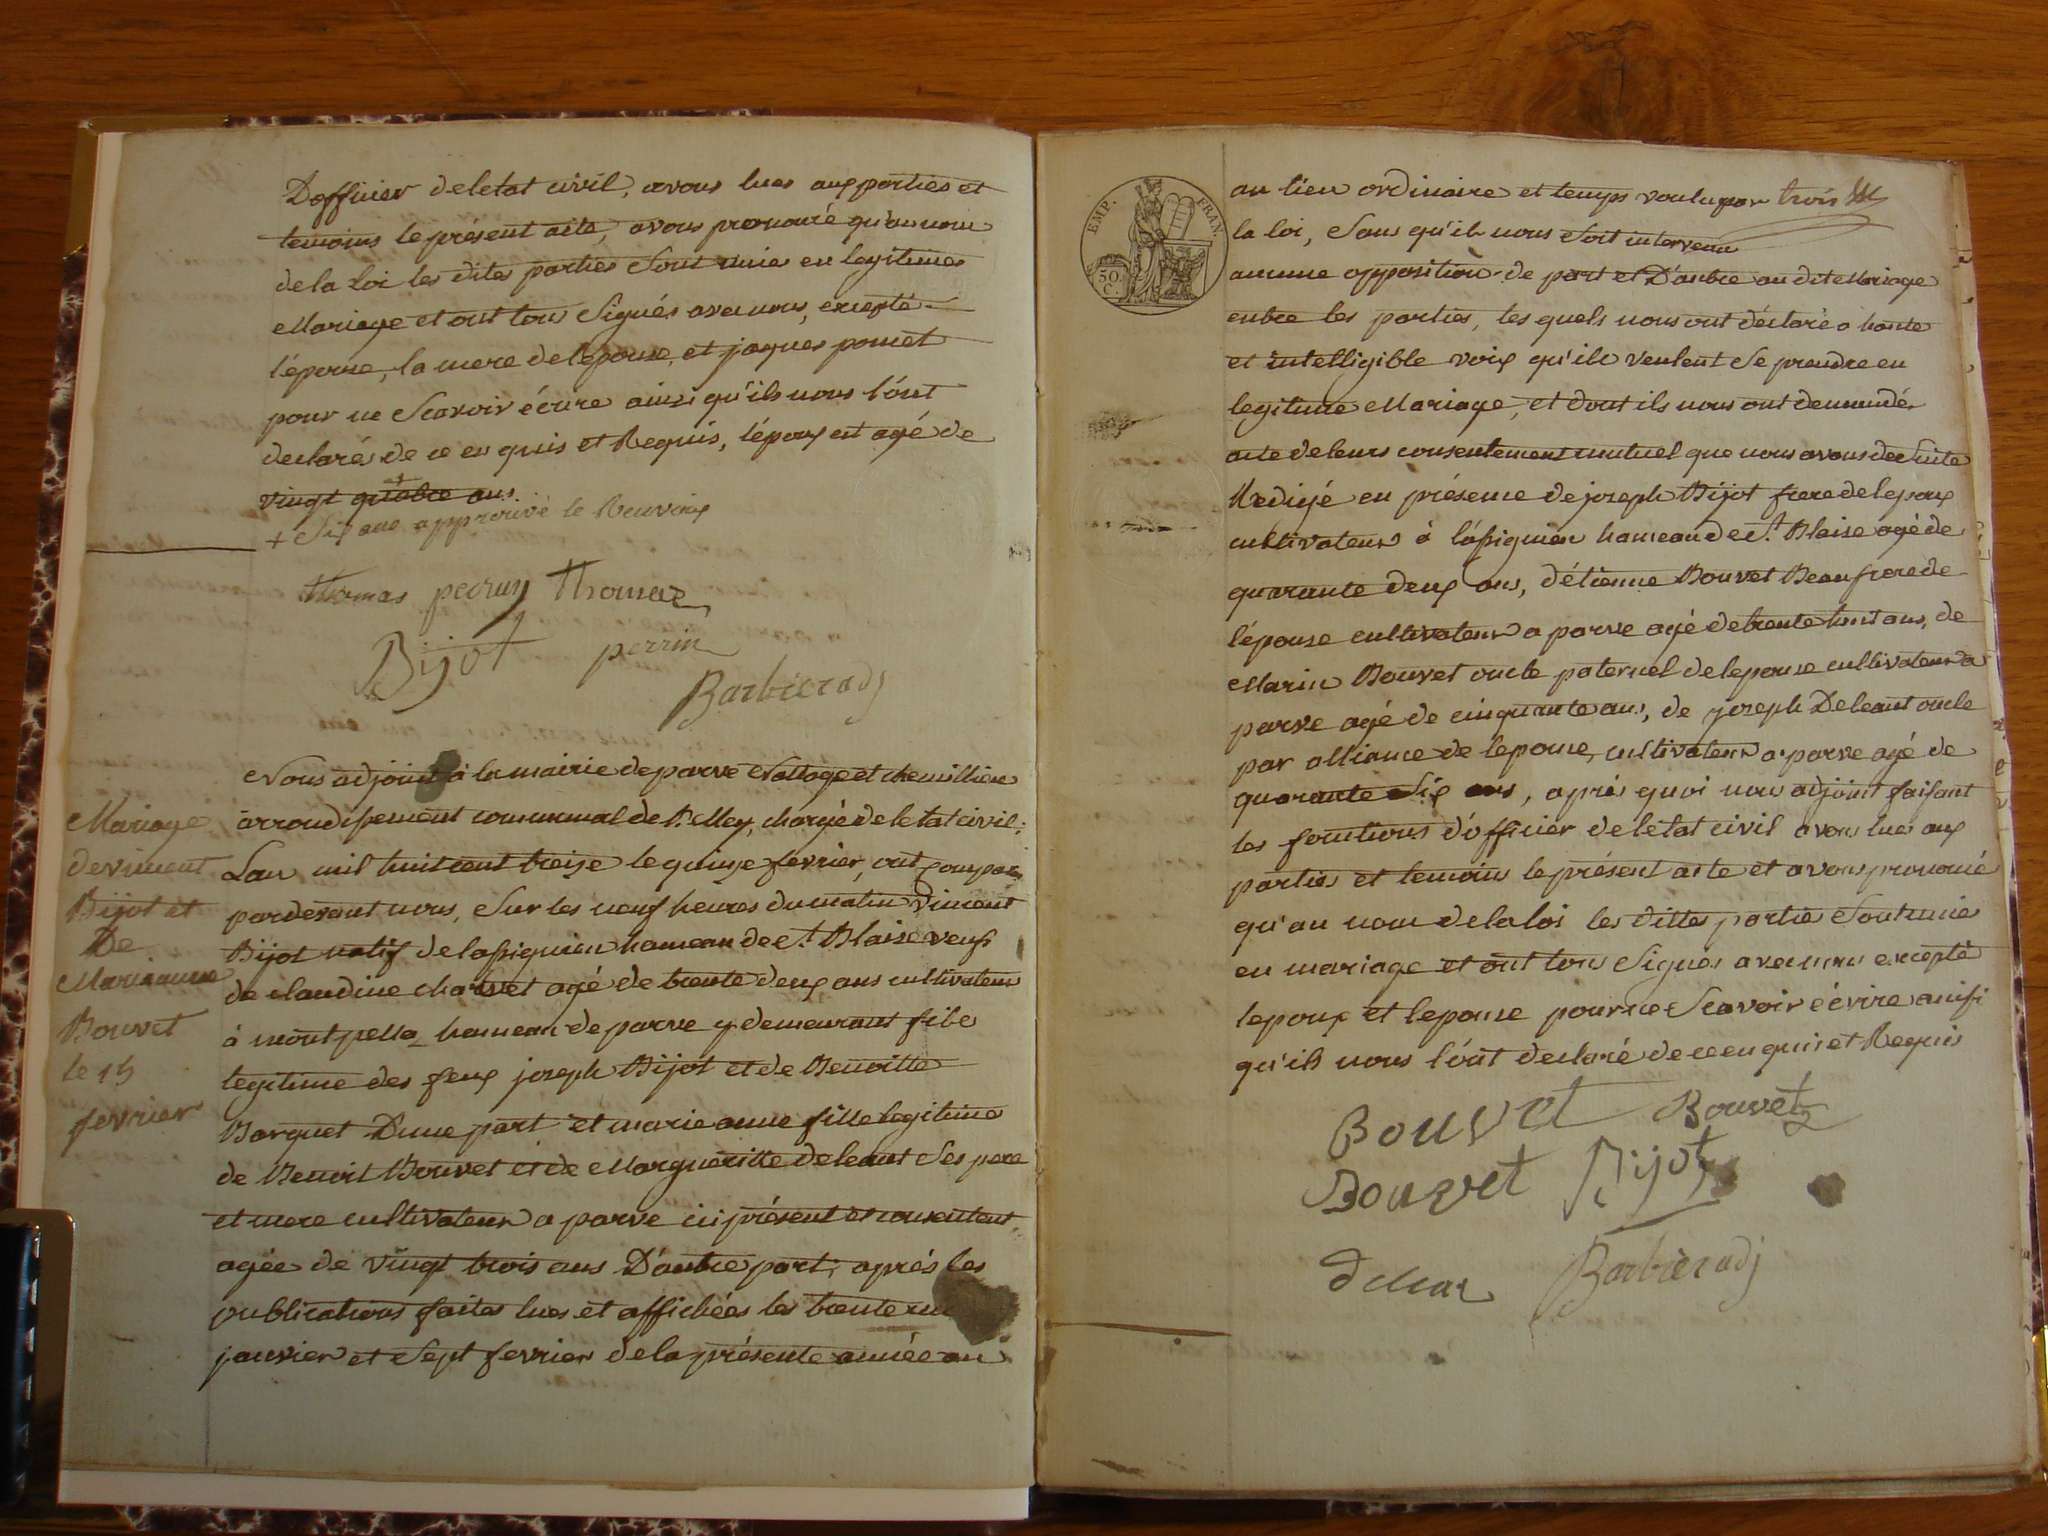 D'officier de letat civil, avons lues aux parties et
temoins le présent acte, avons prononcé qu'au nom
de la loi les dites parties sont unies en legitimes
Mariage et ont tous signés avec nous, excepté
l'épouse, la mere de l'epouse, et jaques pomet
pour ne scavoir écrire ainsi qu'ils nous l'ont
declarés de ce en quis et Requis, l'époux est agé de
vingt quatre ans
+ six ans approuvé le Renvoiy
thomas perruy Thomas
Bijot perrin
Barbier adj
Nous adjoint à la mairie de parve Nattage et chemillieu
arrondissement communal de B. elley, chargé de letat civil;
Lan mil huit cent treize le quinze fevrier, ont comparu
Mariage
de vincent
Bijot et
De
Marieanne
Bouvet
le 15
fevrier
pardevant nous, sur les neuf heures du matin Vincent
Bijot natif de lassignieu hameau de St. Blaise veuf
de claudine charvet agé de trente deux ans cultivateur
à montpella hameau de parve y demeurant fils
legitime des feux joseph Bijot et de Benoitte
Barquet D'une part et marie anne fille legitime
de Benoit Bouvet et de Margueritte deleaut ses pere
et mere cultivateur a parve ici présent et consentent,
agée de vingt trois ans D'autre part, aprés les
publications faites lues et affichées les trente un
janvier et sept fevrier de la présente année au
EMP. FRAN.
50 C.
au lieu ordinaire et temps voulu par trois
la loi, sans qu'il nous soit intervenu
aucune opposition de part et D'autre au dit Mariage
entre les parties, les quels nous ont déclaré a haute
et intelligible voix qu'ils veulent se prendre en
legitime Mariage, et dont ils nous ont demandé
acte de leurs consentement mutuel que nous avons de suite
Redigé en présence de joseph Bijot frere de lepoux
cultivateur à lassignieu hameau de St. Blaise agé de
quarante deux ans, d'étienne Bouvet Beaufrere de
l'épouse cultivateur a parve agé de trente huit ans, de
Marin Bouvet oncle paternel de lepouse cultivateur a
parve agé de cinquante ans, de joseph Deleaut oncle
par alliance de lepouse, cultivateur a parve agé de
quarante six ans, aprés quoi nous adjoint faisant
les fonctions d'officier de letat civil avons lues aux
parties et temoins le présent acte et avons prononcé
qu'au nom de la loi les dittes parties sont unies
en mariage et ont tous signés avec nous excepté
lepoux et lepouse pour ne scavoir écrire ainsi
qu'ils nous l'ont declaré de ce en quis et Requis
Bouvet Bouvet
Bouvet Bijot
Barbier adj